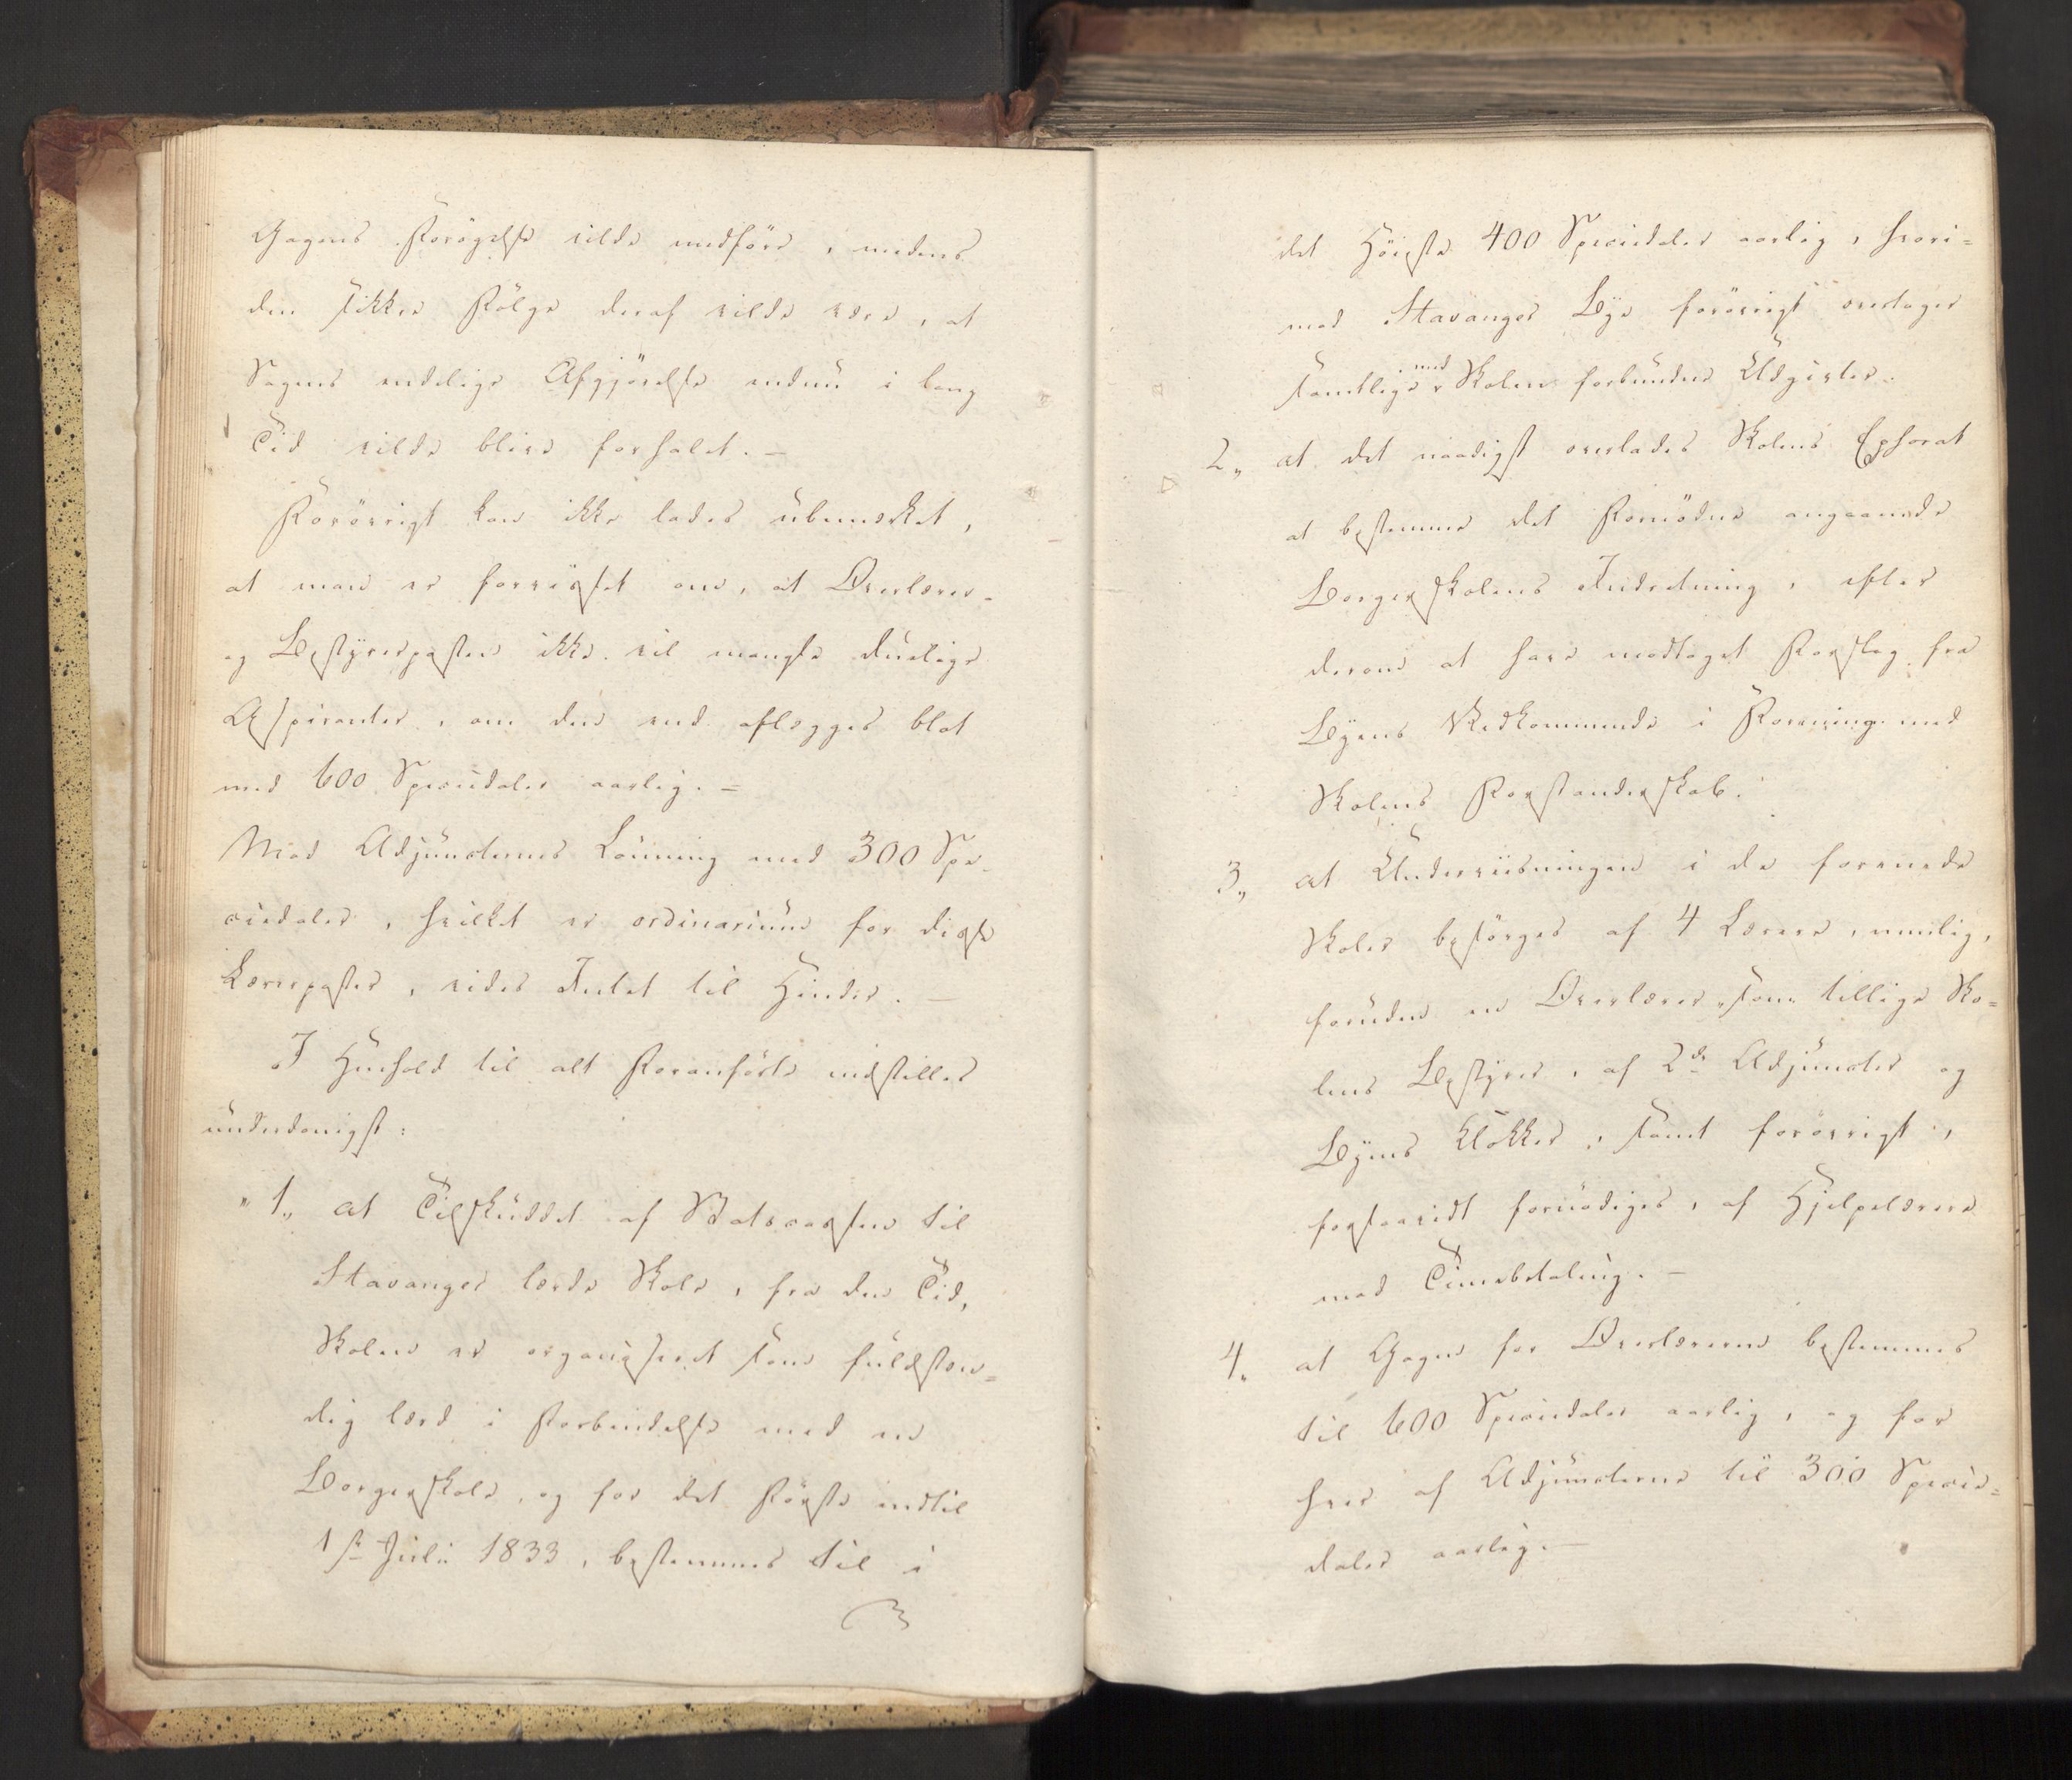 Gagens Forøgelse vilde medføre, medens
den sikkre Følge deraf vilde være, at
Sagens endelige Afgjørelse endnu i lang
Tid vilde blive forhalet. —
Forøvrigt kan ikke lades ubemerket,
at man er forvisset om, at Overlærer-
og Bestyrerposten ikke vil mangle duelige
Aspiranter, om den end aflægges blot
med 600 Speciedaler aarlig. —
Mod Adjuncternes Lønning med 300 Spe-
ciedaler, hvilket er ordinarium for disse
Lærerposter, vides Intet til Hinder. —
I Henhold til alt Foranførte indstilles
underdanigst:
" 1, at Tilskuddet af Statscassen til
Stavanger lærde Skole, fra den Tid,
Skolen er organiseret som fuldstæn=
dig lærd i Forbindelse med en
Borgerskole, og for det Første indtil
1ste Juli 1833, bestemmes til i
det Høieste 400 Speciedaler aarlig, hvori=
mod Stavanger Bye forøvrigt overtager
samtlige med Skolen forbundne Udgivter.
2, at det naadigst overlades Skolens Ephorat
at bestemme det Fornødne angaaende
Borgerskolens Indretning, efter
derom at have modtaget Forslag fra
Byens Vedkommende i Forening med
Skolens Forstanderskab.
3, at Underviisningen i de forenede
Skoler besørges af 4 Lærere, nemlig,
foruden en Overlærer, som tillige Sko=
lens Bestyrer, af 2de Adjuncter og
Byens Klokker, samt forøvrigt,
forsaavidt fornødiges, af Hjelpelærere
mod Timebetaling. —
4, at Gagen for Overlæreren bestemmes
til 600 Speciedaler aarlig, og for
hver af Adjuncterne til 300 Specie=
daler aarlig. —